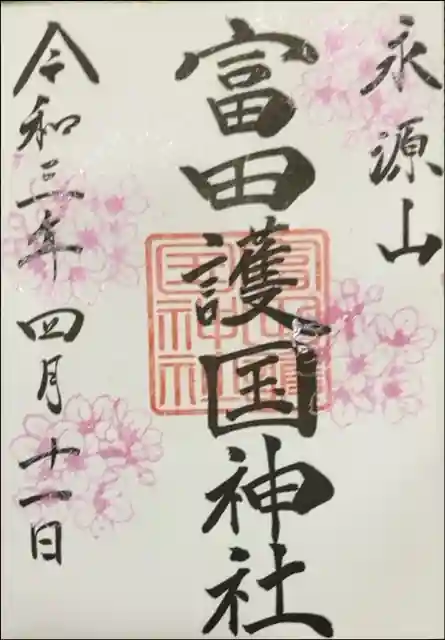 永源山
富田護国神社
令和三年四月十一日
富田護
国神社